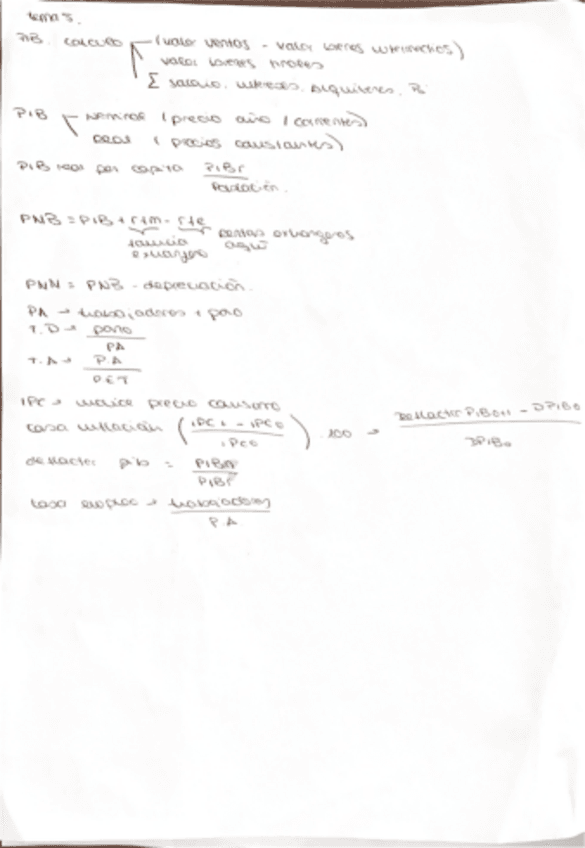 tema 5.
PIB. calculo (valor ventas - valor bienes intermedios)
valor bienes finales
Σ salario, intereses, alquileres, B
PIB nominal (precio año / corrientes)
real (precios constantes)
PIB real per capita PIBr / Población.
PNB = PIB + rfm - rfe rentas extranjeros
familia aquí
extranjero
PNN = PNB - depreciación.
PA → trabajadores + paro
T.D → paro / PA
T.A → P.A / PET
IPC → indice precio consumo
tasa inflación (IPC1 - IPC0 / IPC0) .100 → Deflacter PIB0+1 - DPIB0 / DPIB0
deflacter pib = PIBN / PIBr
tasa empleo → trabajadores / P.A.